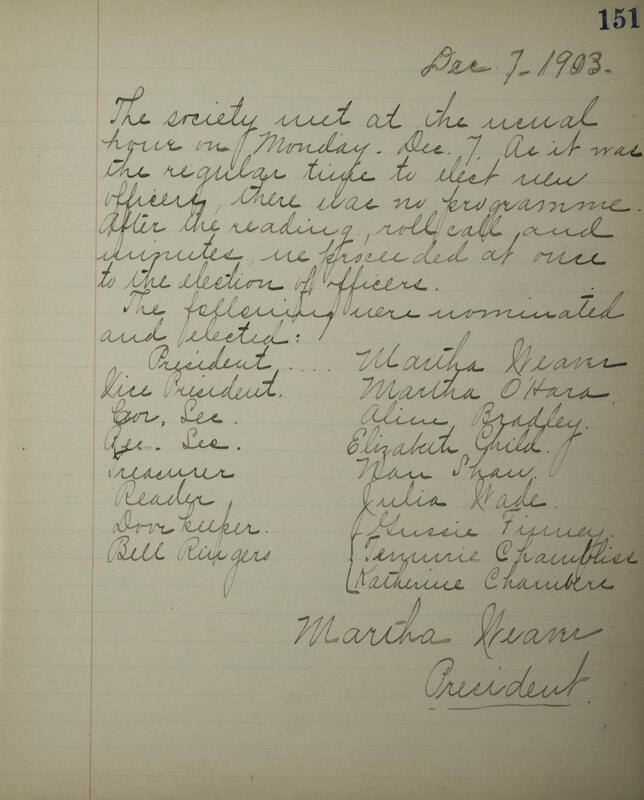 151
Dec. 7 - 1903.
The society met at the usual
hour on Monday - Dec. 7. As it was
the regular time to elect new
officers, there was no programme.
After the reading, roll call and
minutes, we proceeded at once
to the election of officers.
The following were nominated
and elected:
President .... Martha Weaver
Vice President. Martha O'Hara
Cor. Sec. Aline Bradley.
Rec. Sec. Elizabeth Child.
Treasurer Nan Shaw.
Reader Julia Wade.
Door keeper. Gussie Finney
Bell Ringers { Temmie Chambliss
Katherine Chambers
Martha Weaver
President.